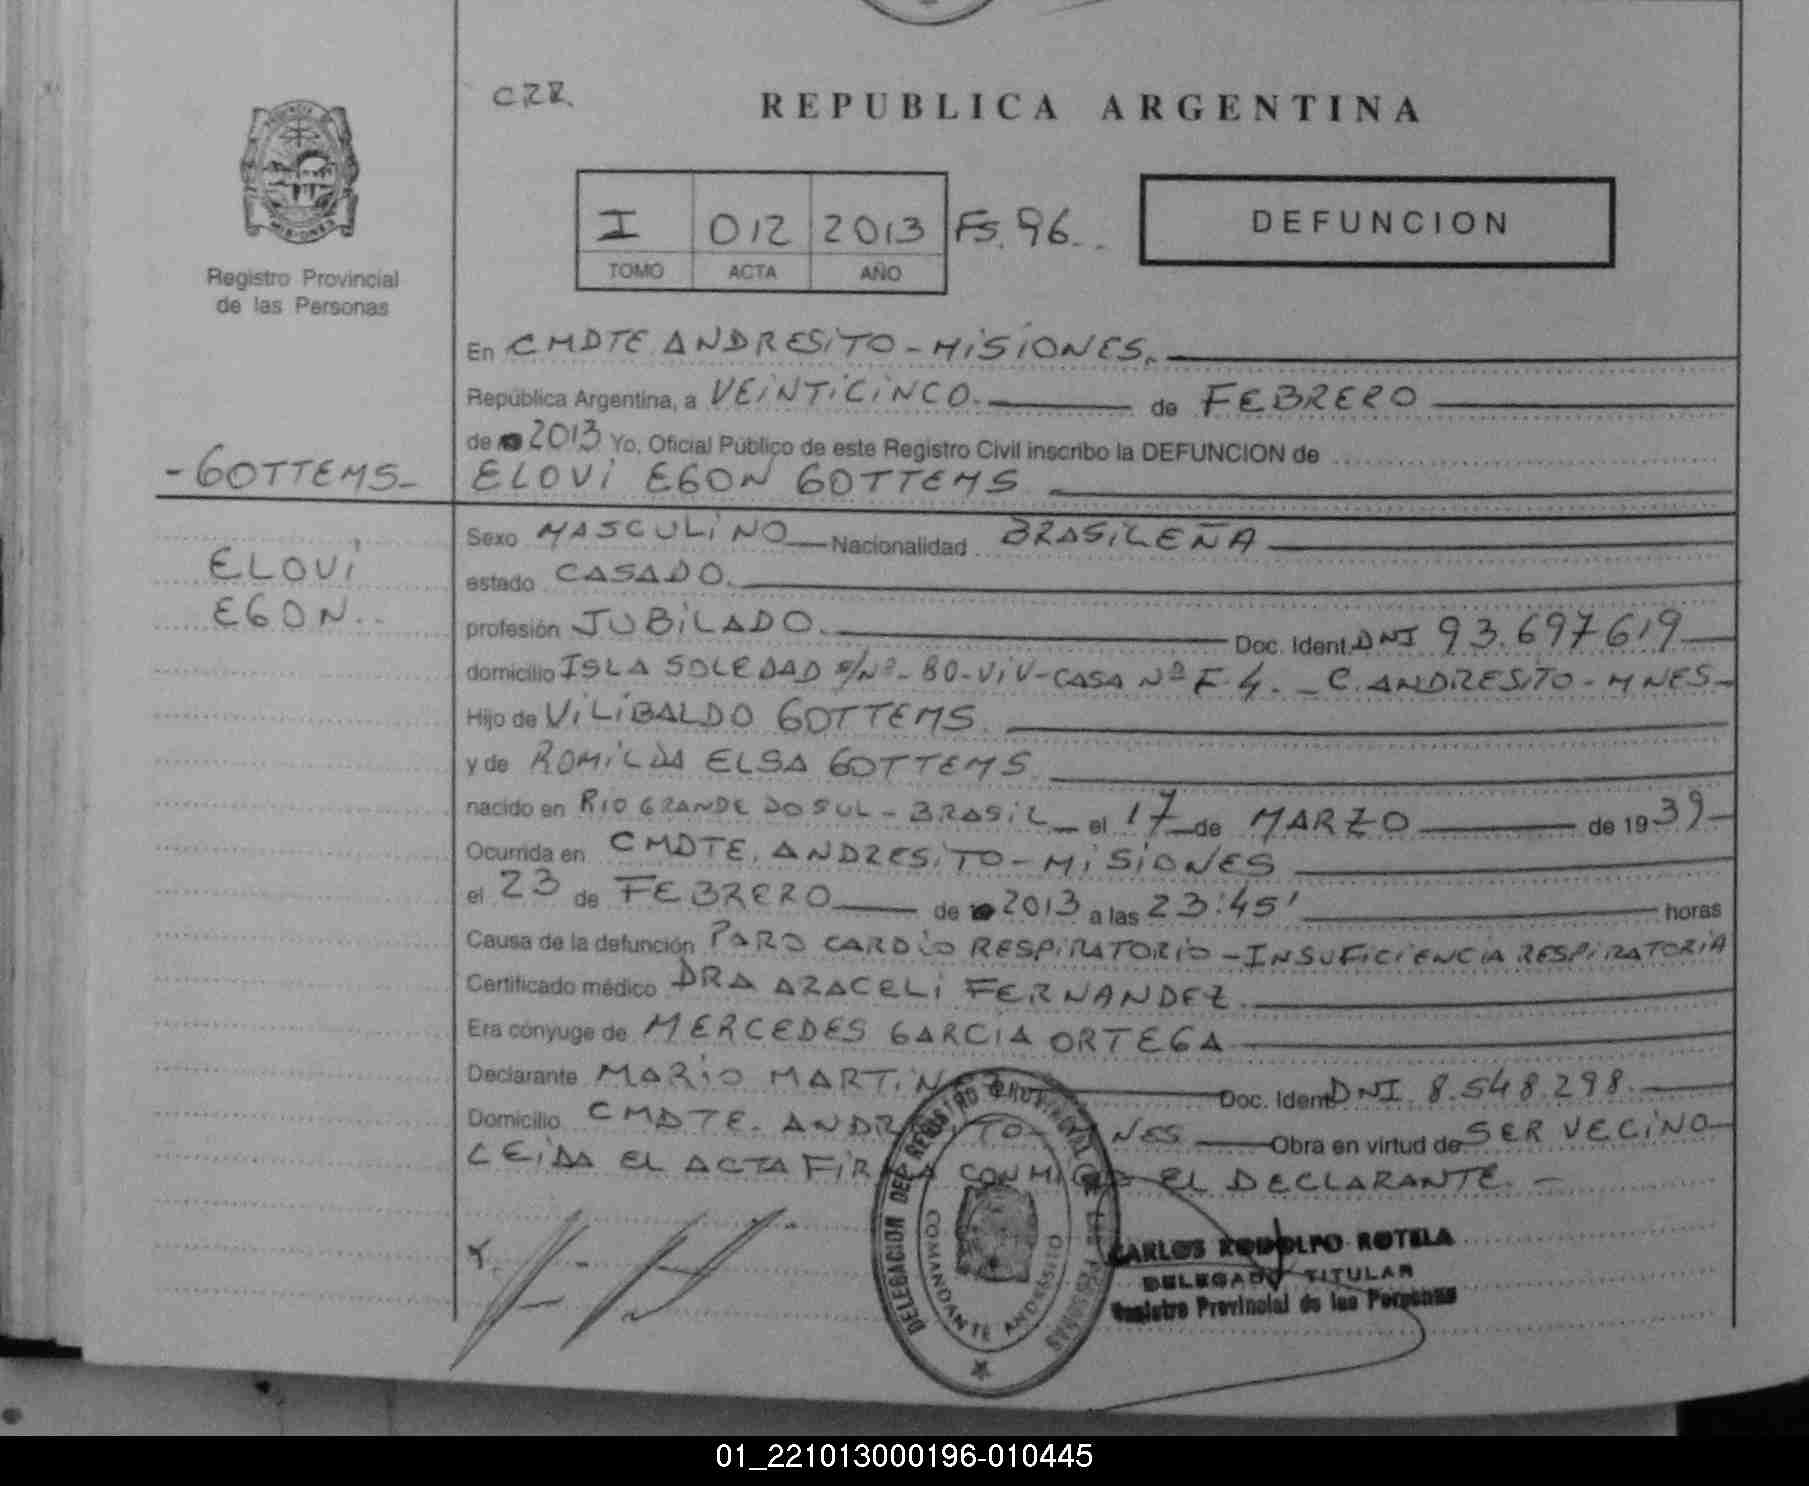 CRR.
REPUBLICA ARGENTINA
I 012 2013 Fs. 96..
TOMO ACTA AÑO
DEFUNCION
MISIONES
Registro Provincial
de las Personas
En CMDTE ANDRESITO - MISIONES.
República Argentina, a VEINTICINCO. de FEBRERO
de 2013 Yo, Oficial Público de este Registro Civil inscribo la DEFUNCION de
- GOTTEMS - ELOVI EGON GOTTEMS
Sexo MASCULINO Nacionalidad BRASILEÑA
ELOVI
estado CASADO.
EGON..
profesión JUBILADO. Doc. Ident. DNI 93.697619
domicilio ISLA SOLEDAD S/Nº - 80 - VIV - CASA Nº F 4. - C. ANDRESITO - MNES -
Hijo de VILIBALDO GOTTEMS
y de ROMILDA ELSA GOTTEMS
nacido en RIO GRANDE DO SUL - BRASIL el 17 de MARZO de 1939
Ocurrida en CMDTE. ANDRESITO - MISIONES
el 23 de FEBRERO de 2013 a las 23:45' horas
Causa de la defunción PARO CARDIO RESPIRATORIO - INSUFICIENCIA RESPIRATORIA
Certificado médico DRA ARACELI FERNANDEZ
Era cónyuge de MERCEDES GARCIA ORTEGA
Declarante MARIO MARTINEZ Doc. Ident DNI 8.548.298.
Domicilio CMDTE. ANDRESITO - MNES Obra en virtud de SER VECINO
LEIDA EL ACTA FIRMA CONMIGO EL DECLARANTE. -
DELEGACION DEL REGISTRO PROVINCIAL DE LAS PERSONAS
COMANDANTE ANDRESITO
CARLOS RODOLFO ROTELA
DELEGADO TITULAR
Registro Provincial de las Personas
01_221013000196-010445